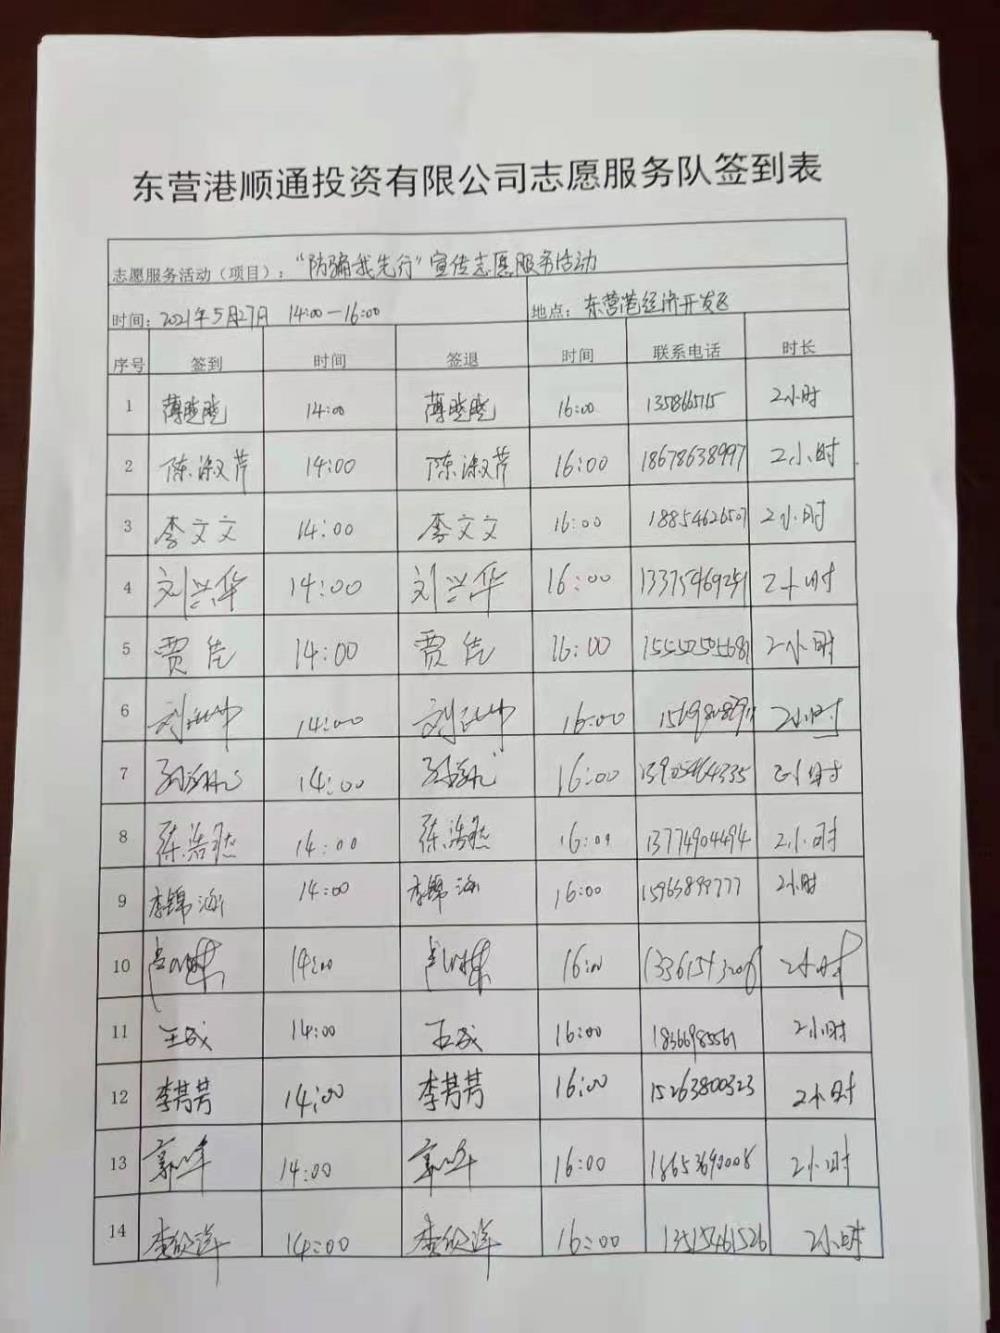 东营港顺通投资有限公司志愿服务队签到表
志愿服务活动（项目）：“防骗我先行”宣传志愿服务活动
时间：2021年5月27日 14:00—16:00 地点：东营港经济开发区
序号 签到 时间 签退 时间 联系电话 时长
1 薄晓晓 14:00 薄晓晓 16:00 2小时
2 陈淑芹 14:00 陈淑芹 16:00 18678638997 2小时
3 李文文 14:00 李文文 16:00 18854626507 2小时
4 刘兴华 14:00 刘兴华 16:00 13375469241 2小时
5 贾佳 14:00 贾佳 16:00 2小时
6 14:00 16:00 2小时
7 14:00 16:00 15905464335 2小时
8 陈浩然 14:00 陈浩然 16:00 13774904494 2小时
9 李锦涵 14:00 李锦涵 16:00 15963899777 2小时
10 14:00 16:00 2小时
11 王成 14:00 王成 16:00 18366985561 2小时
12 李芳芳 14:00 李芳芳 16:00 15263800323 2小时
13 郭峰 14:00 郭峰 16:00 18653690008 2小时
14 李欣洋 14:00 李欣洋 16:00 13515461526 2小时